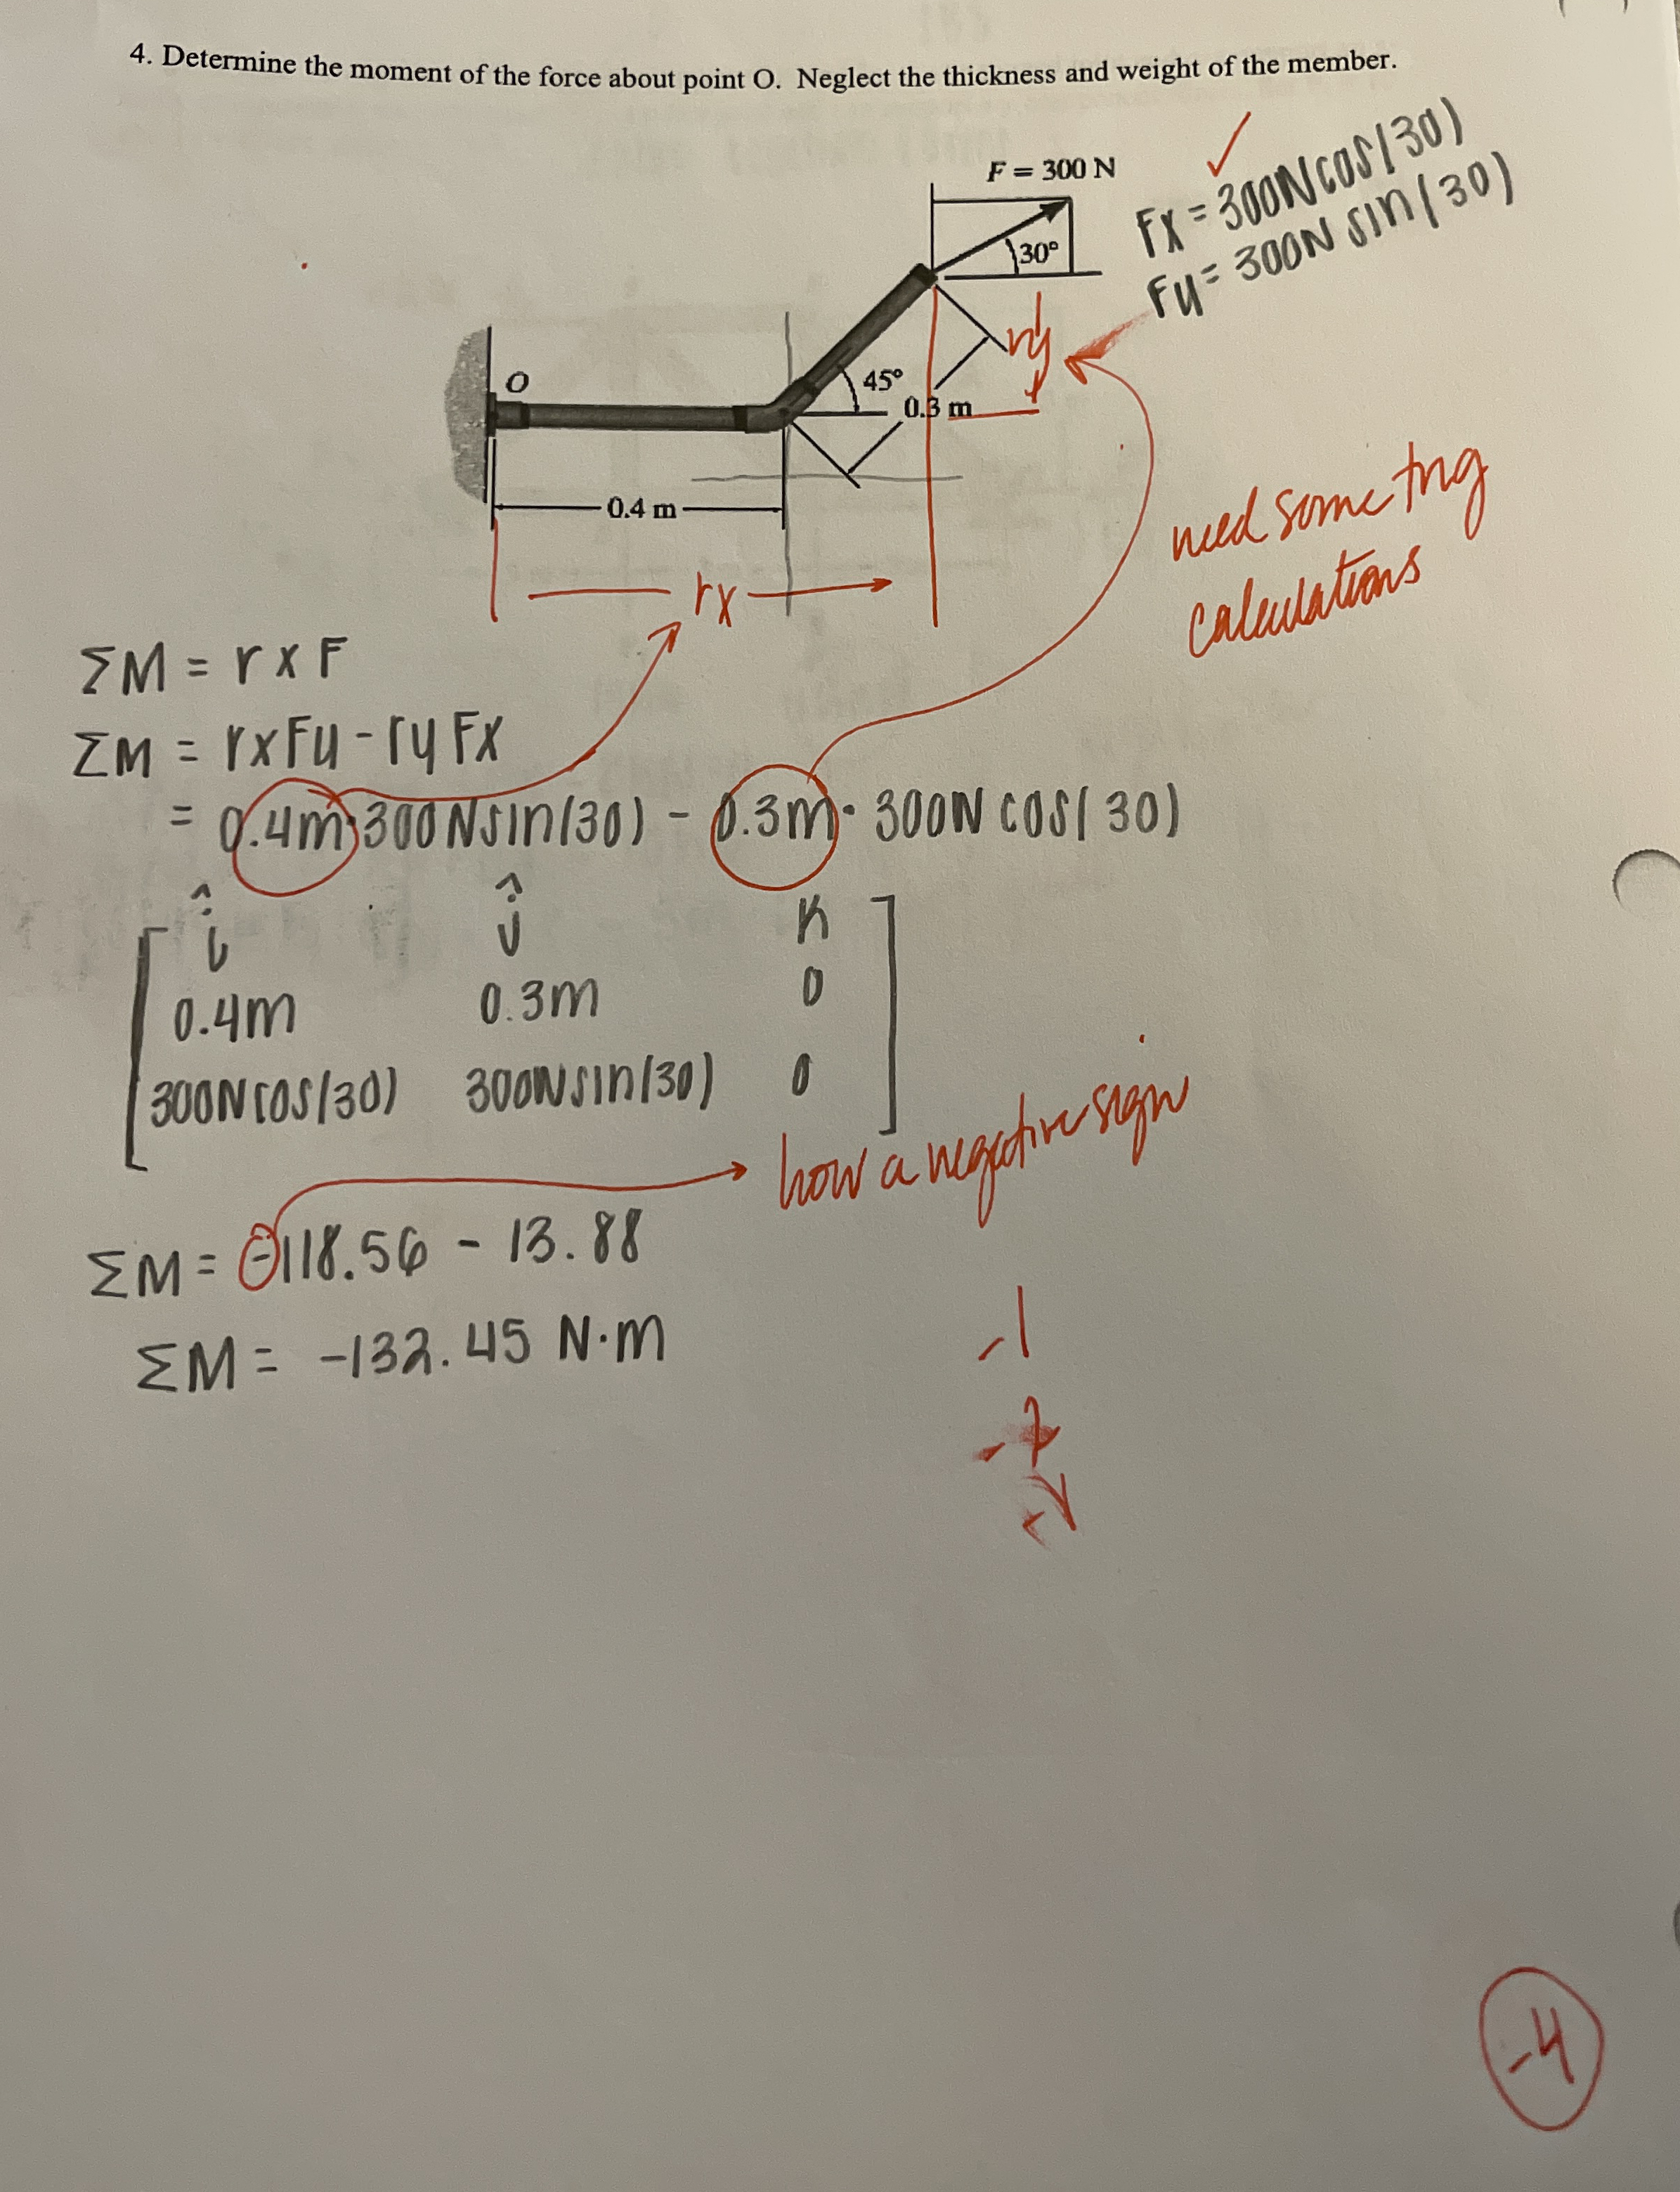 4. Determine the moment of the force about point O. Neglect the thickness and weight of the member.
F = 300 N
✓
Fx = 300N cos(30)
Fy = 300N sin(30)
30°
ry
O
45°
0.3 m
0.4 m
need some trig
calculations
rx
ΣM = r x F
ΣM = rxFy - ry Fx
= 0.4m·300N sin(30) - 0.3m · 300N cos(30)
î ĵ K
0.4m 0.3m 0
300N cos(30) 300N sin(30) 0
how a negative sign
ΣM = -118.56 - 13.88
ΣM = -132.45 N·m
-1
-2
-4